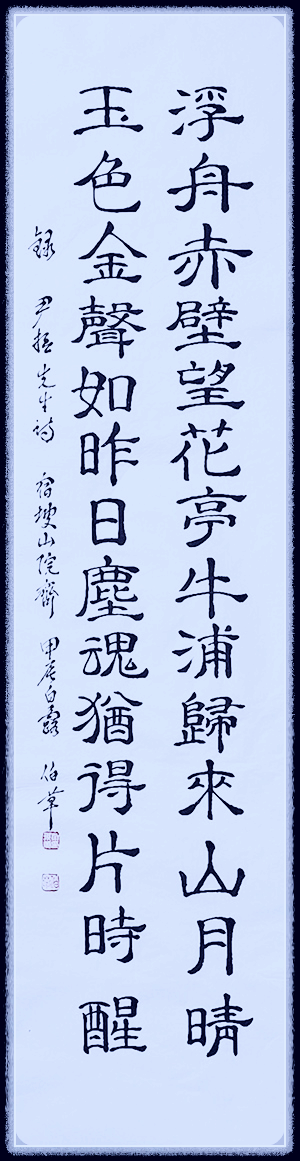 浮舟赤壁望花亭牛浦歸來山月晴
玉色金聲如昨日塵魂猶得片時醒
錄 尹拯先生詩 宿堗山院齋 甲辰白露 伯草